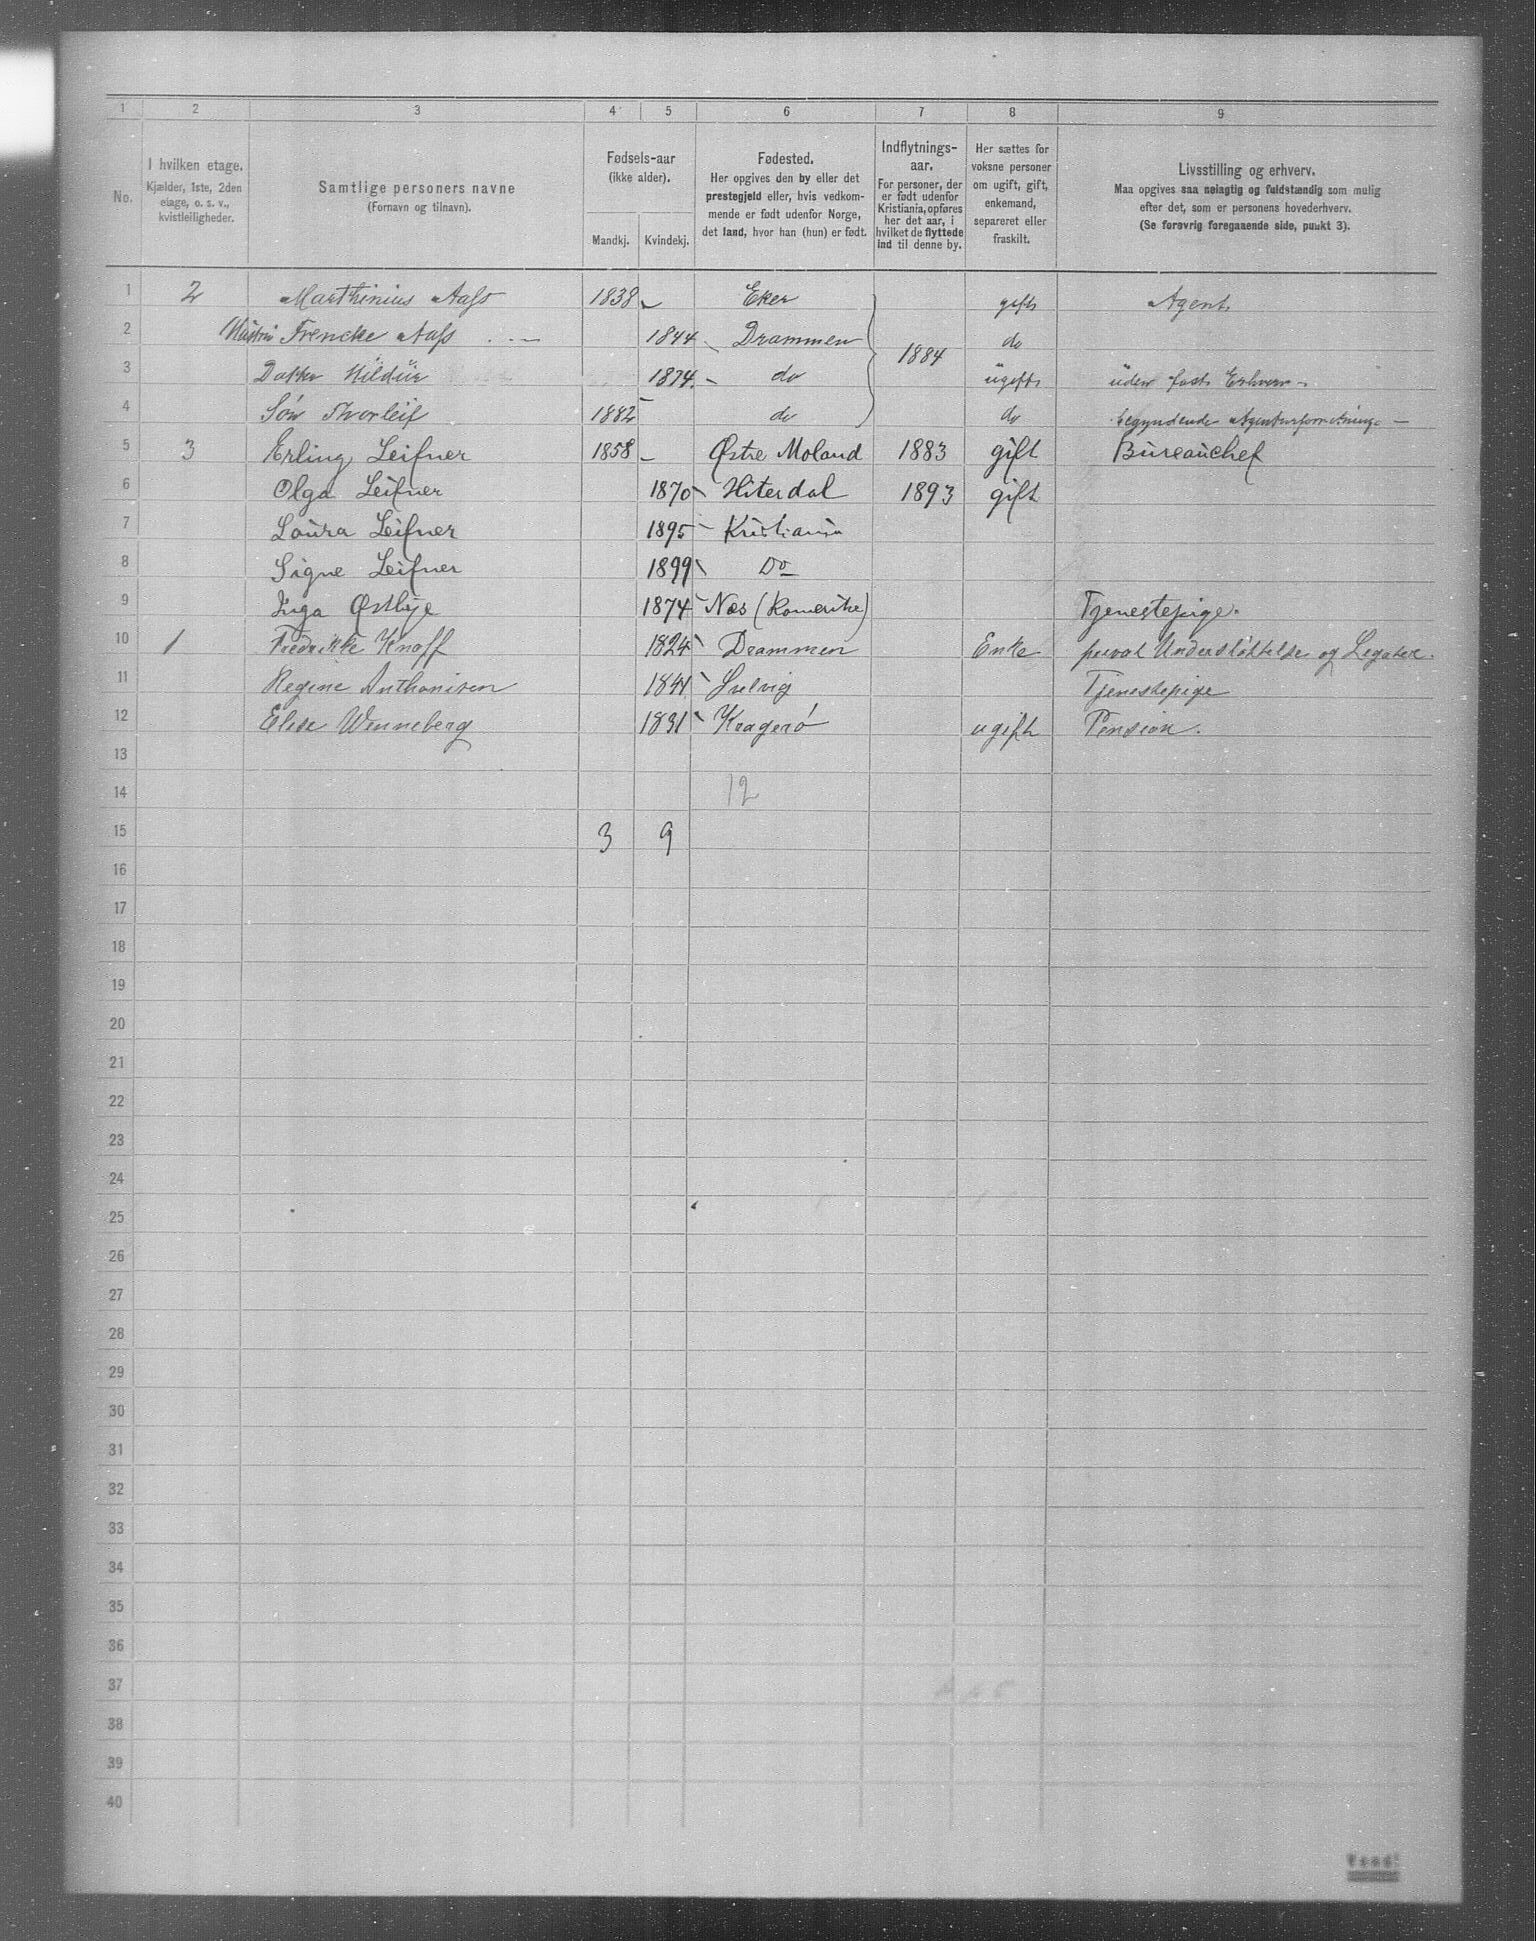 1 2 3 4 5 6 7 8 9
No.
I hvilken etage.
Kjælder, 1ste, 2den
etage, o. s. v.,
kvistleiligheder.
Samtlige personers navne
(Fornavn og tilnavn).
Fødsels-aar
(ikke alder).
Mandkj. Kvindekj.
Fødested.
Her opgives den by eller det
prestegjeld eller, hvis vedkom-
mende er født udenfor Norge,
det land, hvor han (hun) er født.
Indflytnings-
aar.
For personer, der
er født udenfor
Kristiania, opføres
her det aar, i
hvilket de flyttede
ind til denne by.
Her sættes for
voksne personer
om ugift, gift,
enkemand,
separeret eller
fraskilt.
Livsstilling og erhverv.
Maa opgives saa nøiagtig og fuldstændig som mulig
efter det, som er personens hovederhverv.
(Se forøvrig foregaaende side, punkt 3).
1 2 Marthinius Aass 1838 Eker gift Agent
2 Hustru Frencke Aass 1844 Drammen 1884 do
3 Datter Hildur 1874 do ugift uden fast Erhverv
4 Søn Thorleif 1882 do do begyndende Agenturforretning
5 3 Erling Leifner 1858 Østre Moland 1883 gift Bureauchef
6 Olga Leifner 1870 Hiterdal 1893 gift
7 Laura Leifner 1895 Kristiania
8 Signe Leifner 1899 Do
9 Inga Østbye 1874 Næs (Romerike) Tjenestepige.
10 1 Fredrikke Knoff 1824 Drammen Enke privat Understøttelse og Legater.
11 Regine Anthonisen 1841 Svelvig Tjenestepige
12 Elise Wenneberg 1831 Kragerø ugift Pension.
13
14 12
15 3 9
16
17
18
19
20
21
22
23
24
25
26
27
28
29
30
31
32
33
34
35
36
37
38
39
40
Vend!